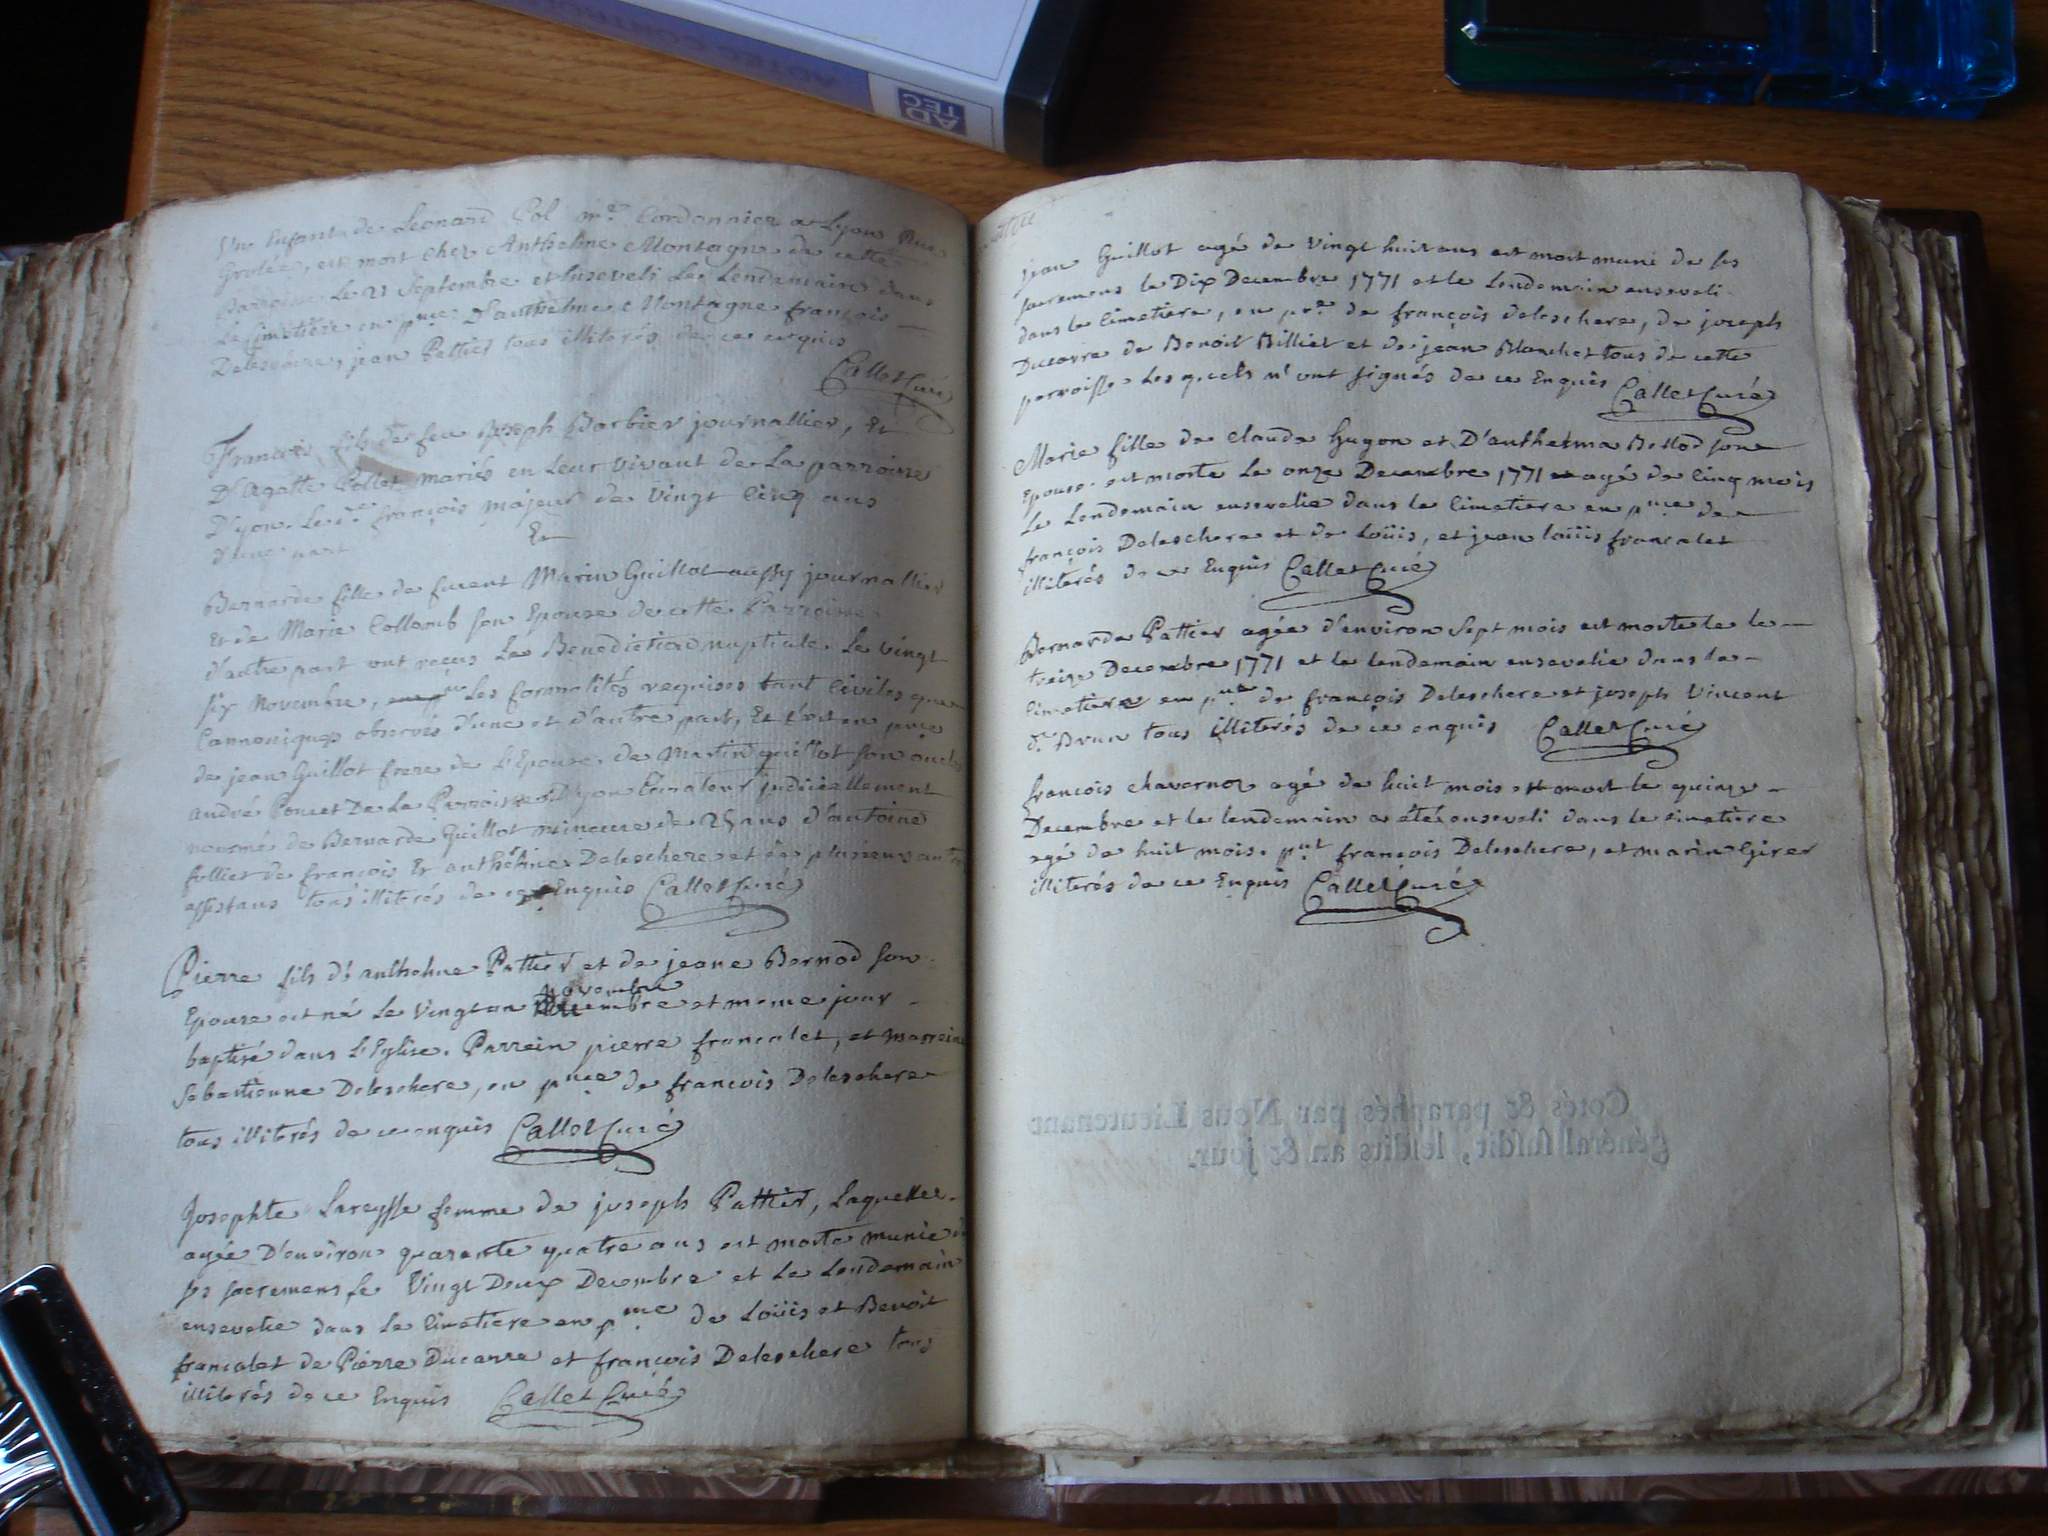 AD TEC
Un Enfant de Leonard Pol m.e Cordonnier a Lyon Rue
Grolée, est mort chez Anthelme Montagne de cette
parroisse le 21 Septembre et Enseveli Le Lendemain dans
Le Cimetière en p.nce D'anthelme Montagne françois
Deleschere, jean Pattier tous illiterés de ce enquis
Callet Curé
Francois fils de feu Joseph Barbier journallier, Et
D'Agatte Collet mariés en Leur vivant de La parroisse
D'yon. Le d.t françois majeur de vingt Cinq ans
d'une part
Et
Bernarde fille de furent Marin Guillot aussy journallier
Et de Marie Collomb son Epouse de cette Parroisse
d'autre part ont reçus La Benediction nuptiale Le vingt
six Novembre, Les formalités requises tant Civiles que
Cannoniques observés d'une et d'autre part, Et c'est en p.nce
de jean Guillot frere de L'Epouse, de Martin guillot son oncle
André Poncet De La Parroisse D'yon Curateur judiciellement
nommé de Bernarde Guillot mineure de 25 ans d'antoine
follier de françois Et anthelme Deleschere et de plusieurs autres
assistans tous illiterés de ce Enquis Callet Curé
Pierre fils d'anthelme Pattier et de jeane Bernod son
Epouse est né Le vingt un Novembre et meme jour
baptisé dans L'Eglise. Parrein pierre francalet, et marreine
Sebastienne Deleschere, en p.nce de francois Deleschere
tous illiterés de ce enquis Callet Curé
Josephte Lareysse femme de joseph Pattier, Laquelle
agée D'environ quarante quatre ans est morte munie de
ses sacremens le Vingt Deux Decembre et Le Lendemain
ensevelie dans Le Cimetiere en p.nce de Loüis et Benoit
francalet de Pierre Ducarre et francois Deleschere tous
illiterés de ce Enquis Callet Curé
jean Guillot agé de vingt huit ans est mort muni de ses
sacremens le Dix Decembre 1771 et le Lendemain enseveli
dans le Cimetiere, en p.ce de françois deleschere, de joseph
Ducarre de Benoit Billiet et de jean Blanchet tous de cette
parroisse Lesquels n'ont signés de ce Enquis Callet Curé
Marie fille de claude hugon et D'anthelma Bellod son
Epouse est morte Le onze Decembre 1771 agé de Cinq mois
Le Lendemain ensevelie dans le Cimetiere en p.nce de
françois Deleschere et de Loüis, et jean loüis francalet
illiterés de ce Enquis Callet Curé
Bernarde Pattier agée d'environ sept mois est morte le le
treize Decembre 1771 et le lendemain ensevelie dans le
Cimetiere en p.nce de françois Deleschere et joseph Vincent
d.t Brun tous illiterés de ce enquis Callet Curé
francois chavernoz agé de huit mois est mort le quinze
Decembre et le lendemain a été enseveli dans le cimetiere
agé de huit mois. p.nt françois Deleschere, et marin Girer
illiterés de ce Enquis Callet Curé
Cotés & paraphés par Nous Lieutenant
général susdit, lesdits an & jour.